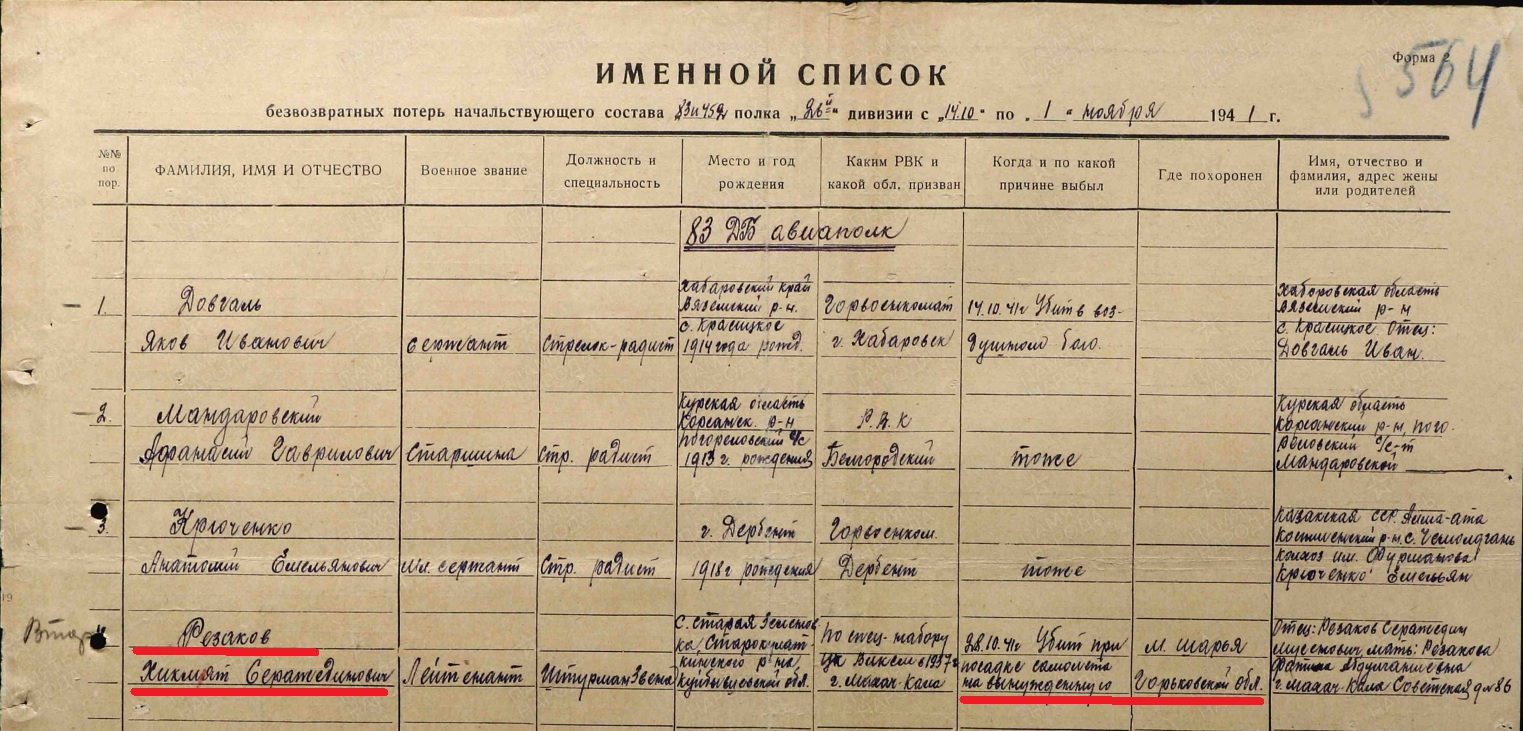 Форма 2
564
ИМЕННОЙ СПИСОК
безвозвратных потерь начальствующего состава 83 и 452 полка „26й“ дивизии с „14.10“ по „1“ ноября 1941 г.
№№ по пор.
ФАМИЛИЯ, ИМЯ И ОТЧЕСТВО
Военное звание
Должность и специальность
Место и год рождения
Каким РВК и какой обл. призван
Когда и по какой причине выбыл
Где похоронен
Имя, отчество и фамилия, адрес жены или родителей
83 ДБ авиаполк
1.
Довгаль
Яков Иванович
сержант
Стрелок-радист
Хабаровский край
Вяземский р-н.
с. Красицкое
1914 года рожд.
Горвоенкомат
г. Хабаровск
14.10.41г Убит в воз-
душного бою.
Хаборовская область
Вяземский р-н
с. Красицкое Отец:
Довгаль Иван.
2.
Мандаровский
Афанасий Гаврилович
Старшина
Стр. радист
Курская область
р-н
с/с
1913 г. рождения
Р.В.К
Белгородский
тоже
Курская область
р-н, пого-
с/с-т
Мандаровской
3.
Крюченко
Анатолий Емельянович
мл. сержант
Стр. радист
г. Дербент
1918г рождения
Горвоенком.
Дербент
тоже
Казакская сср. Алма-ата
р-н. с.
колхоз им. Фурманова
Крюченко Емельян
4.
Резаков
Хикмят Серажединович
Лейтенант
Штурман Звена
с. Старая Зеленов
ка, Старокулат-
кинского р-на
Куйбышевской обл.
по спец-набору
ЦК ВЛКСМ в 1937г
г. Махач-Кала
28.10.41г Убит при
посадке самолета
на вынужденную
м. Шарья
Горьковской обл.
Отец: Резаков Серажедин
Мусенович, мать: Резакова
Абдулганиевна
г. Махач-Кала Советская д №86